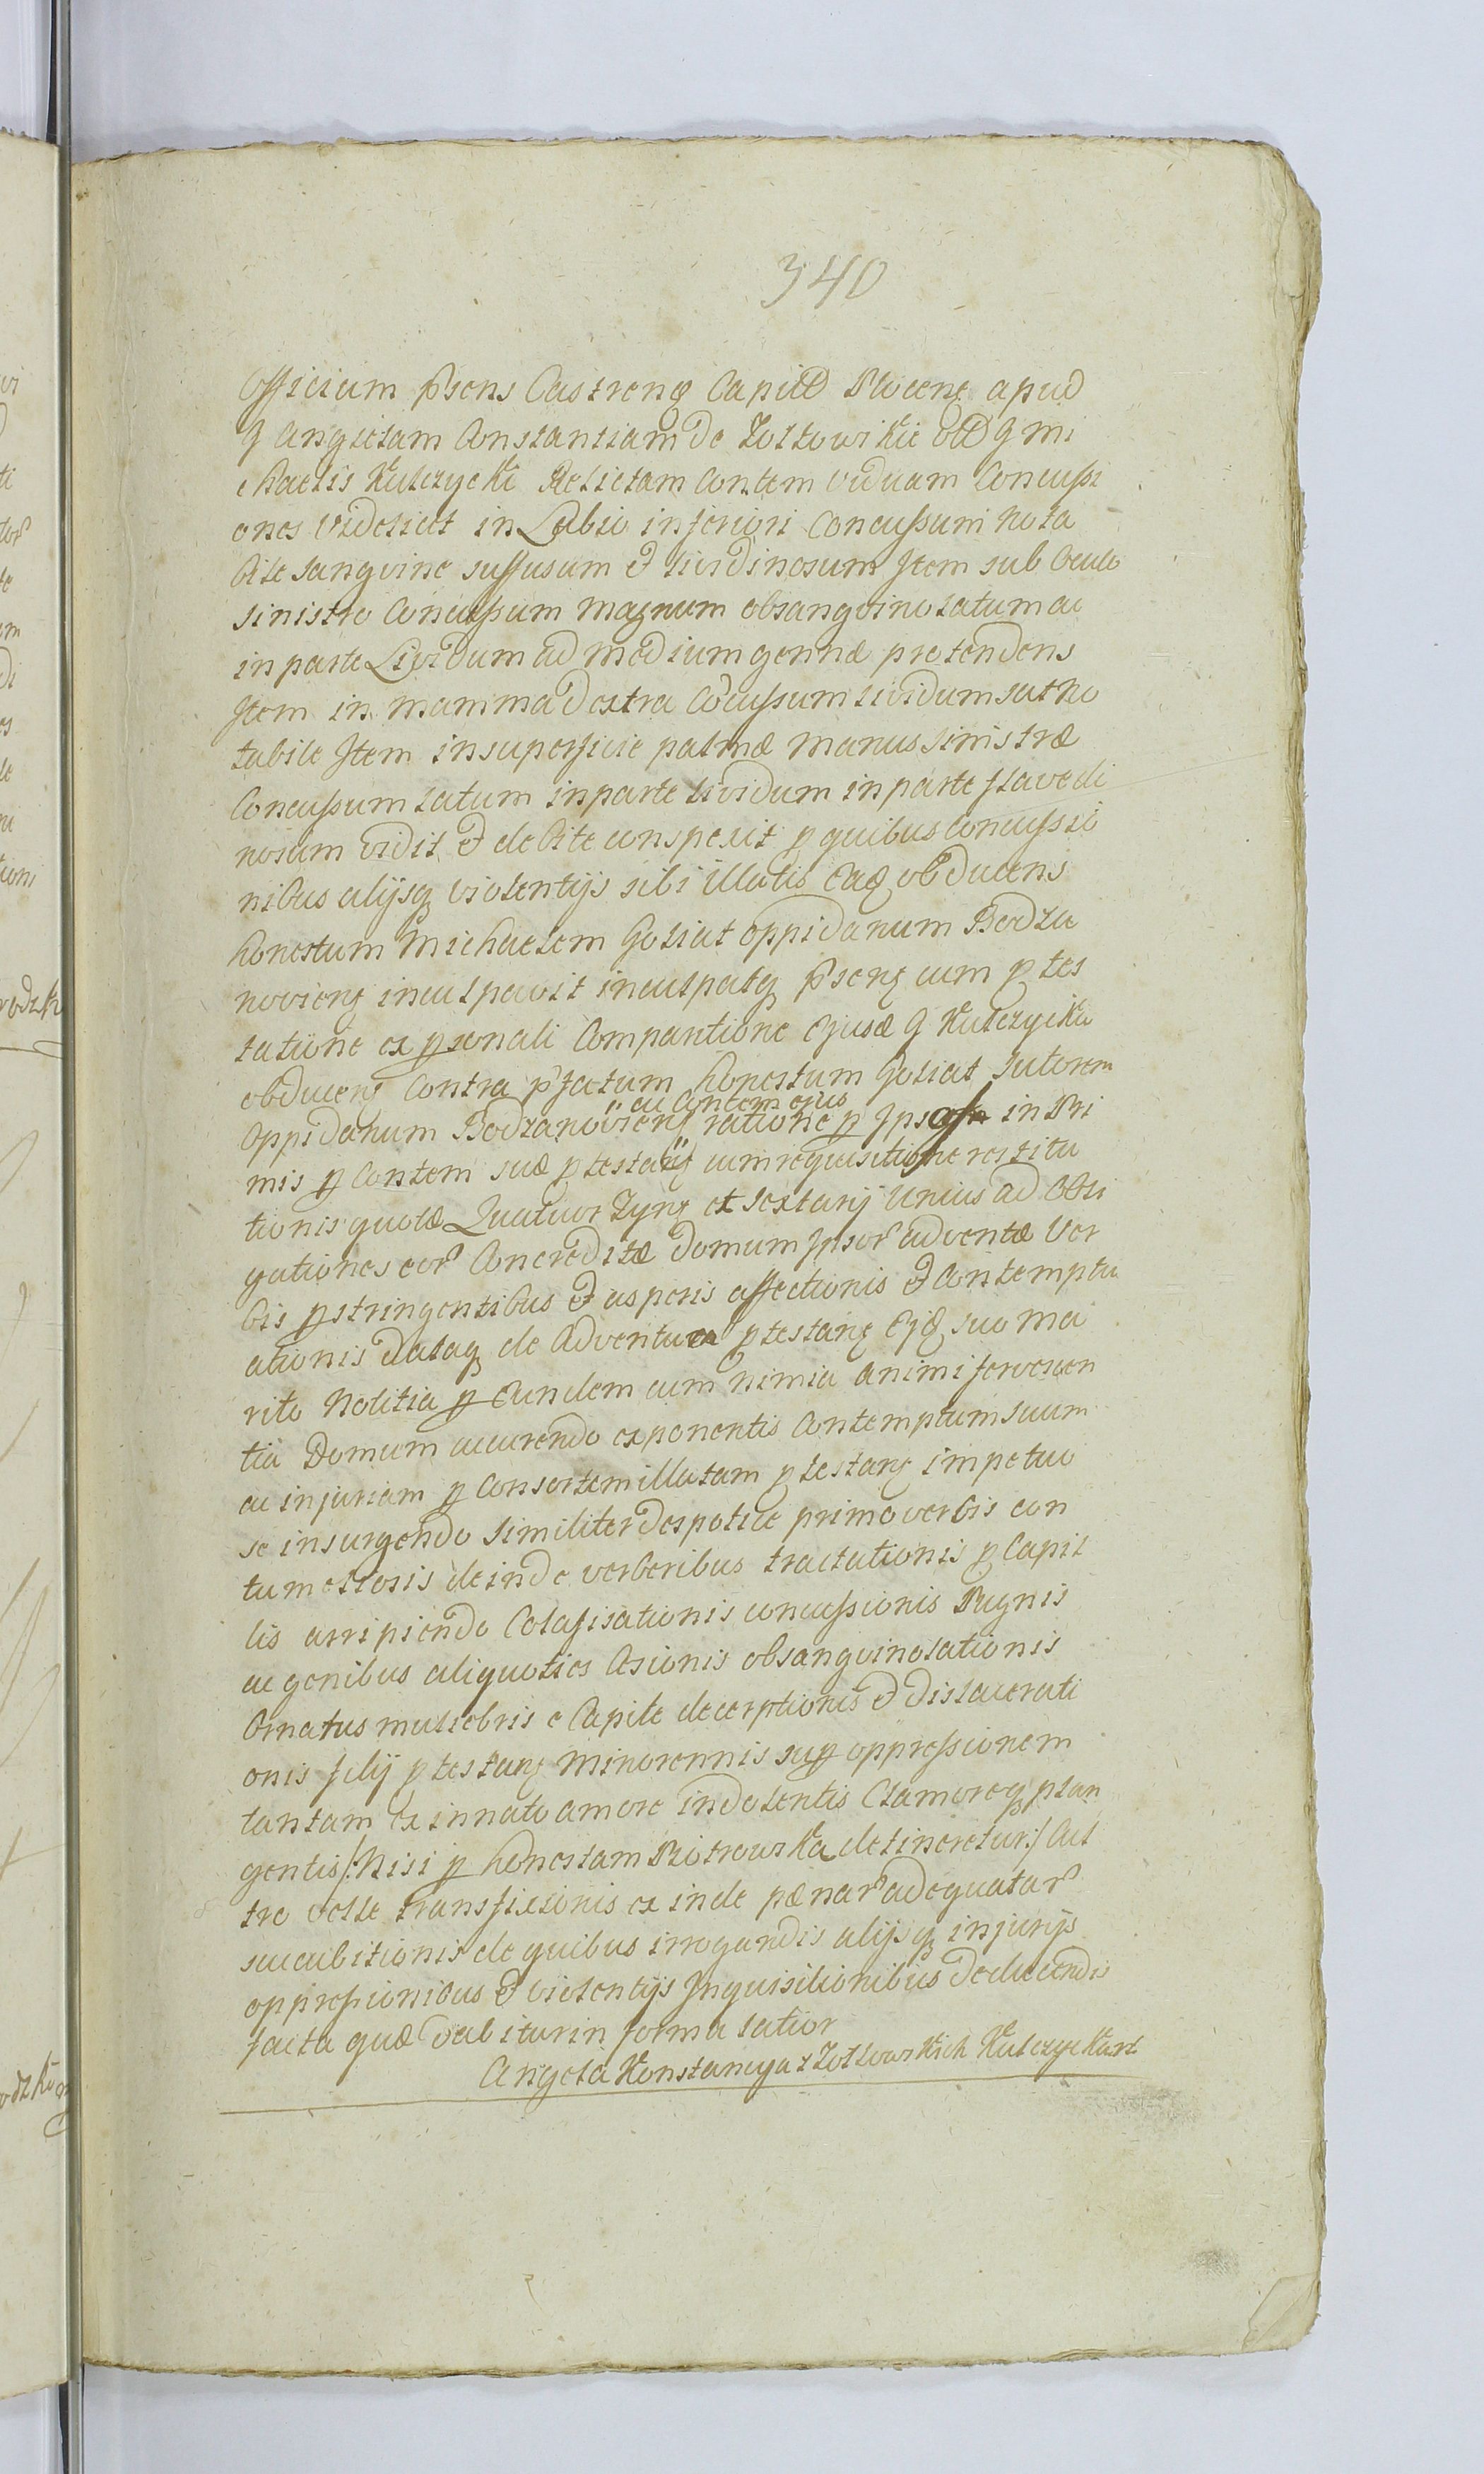 340
Officium Psens Castrens Capitle Plocens apud
G Angletam Constantiam de Zoltowskie olim G Mi
chaelis Kulczycki Relictam Contem viduam Concussi
ones Videlicet in Labio inferiori Concussum nota
bile sangvine suffusum et lividinosum Item sub Oculo
sinistro Concussum magnum obsangvinolatum ac
in parte Lividum ad medium gennæ protendens
Item in mamma dextra Cocussum lividum sat no
tabile Item in superficie palmæ manus sinistræ
Concussum latum in parte lividum in parte flavedi
nosum vidit et debite conspexit p quibus concussio
nibus alijsq violentijs sibi illatis Eadq obducens
honestum Michaelem Goliat oppidanum Bodza
noviens inculpavit inculpatq Psens cum p tes
tatione ex psonali Comparitione Ejusd G Kulczycka
obducens Contra pfatum honestum Goliat Sutorem
ac Contem ejus
Oppidanum Bodzanoviens ratione p Ips in Pri
mis p Contem suæ p testans cum requisitione restitu
tionis quotæ Quatuor Tynf et sextarij unius ad Obli
gationes eor Concreditæ domum Ipsor adventæ Ver
bis pstringentibus et asperis affectionis et Contemptu
ationis dataq de Adventu p testans Ejq suo ma
rito Notitia p Eundem cum nimia animi fervescen
tia Domum accurendo exponentis Contemptum suum
ac injuriam p Consortem illatam p testans impetuo
se insurgendo Similiter despotice primo verbis con
tumeliosis deinde verberibus tractationis p Capil
lis arripiendo Colafisationis concussionis Pugnis
ac genibus aliquoties læsionis obsangvinolationis
Ornatus muliebris e Capite decerptionis et dislacerati
onis filij p testans Minorennis sup oppressionem
tantam Ex innato amore indolentis Clamoreq plan
gentis /: Nisi p honestam Piotrowska detineretur :/ Cul
tro velle transfixionis ex inde pænar adequatar
succubitionis de quibus irrogandis alijsq injurijs
oppressionibus et violentijs Inquisitionibus deducendis
facta quæ dabitur in forma latior
Angela Konstancya z Zoltowskich Kulczycka